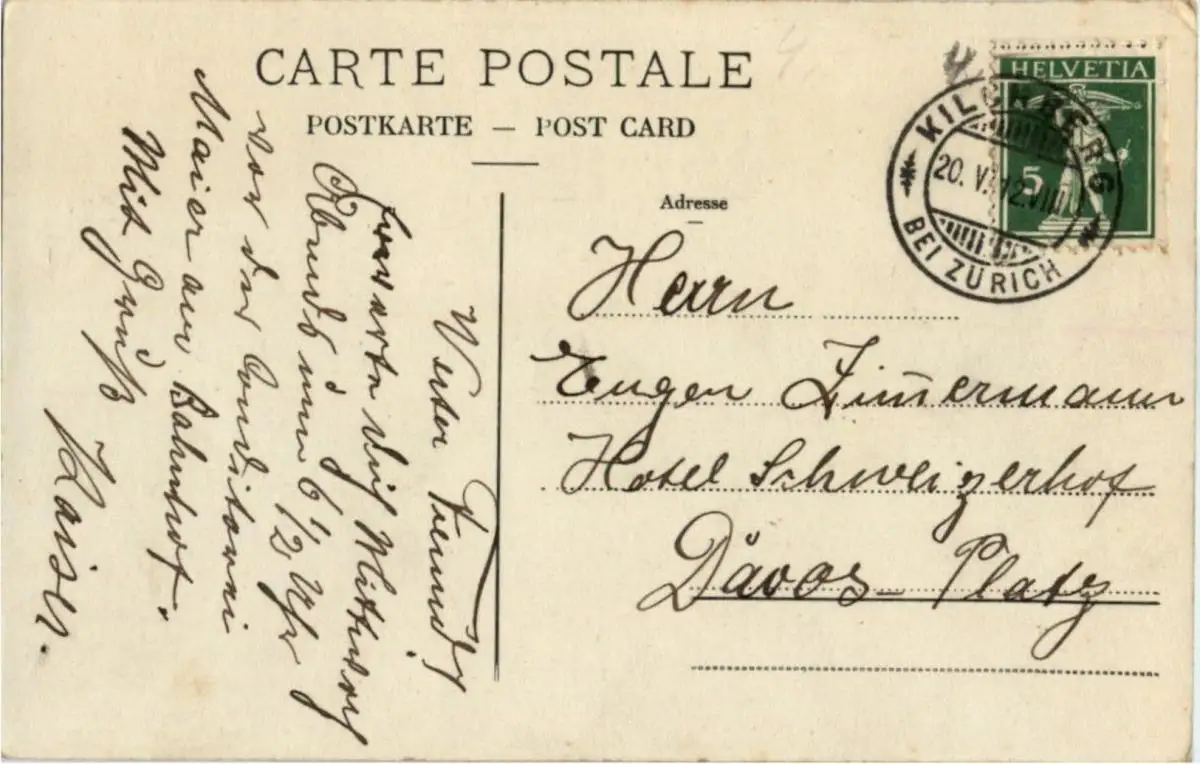 CARTE POSTALE
POSTKARTE — POST CARD
Adresse
HELVETIA
5
KILCHBERG
20. V. 12. VIII
BEI ZÜRICH
Herrn
Eugen Zimermann
Hotel Schweizerhof
Davos-Platz
Werter Freund,
Erwarte dich Mittwoch
Abends um 6 1/2 Uhr
vor der Conditorei
Maier am Bahnhof.
Mit Gruß
Kaiser.